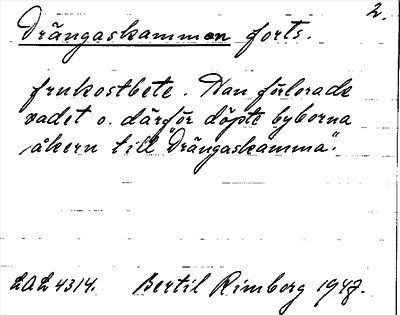 2.
Drängaskamman forts.
frukostbete. Han förlorade
vadet o. därför döpte byborna
åkern till "Drängaskamma".
LAL 4314. Bertil Rimborg 1947.